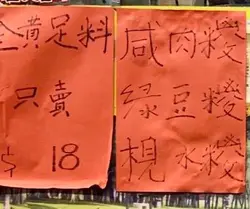 黃足料
只賣
18
咸肉糉
绿豆糉
梘水糉